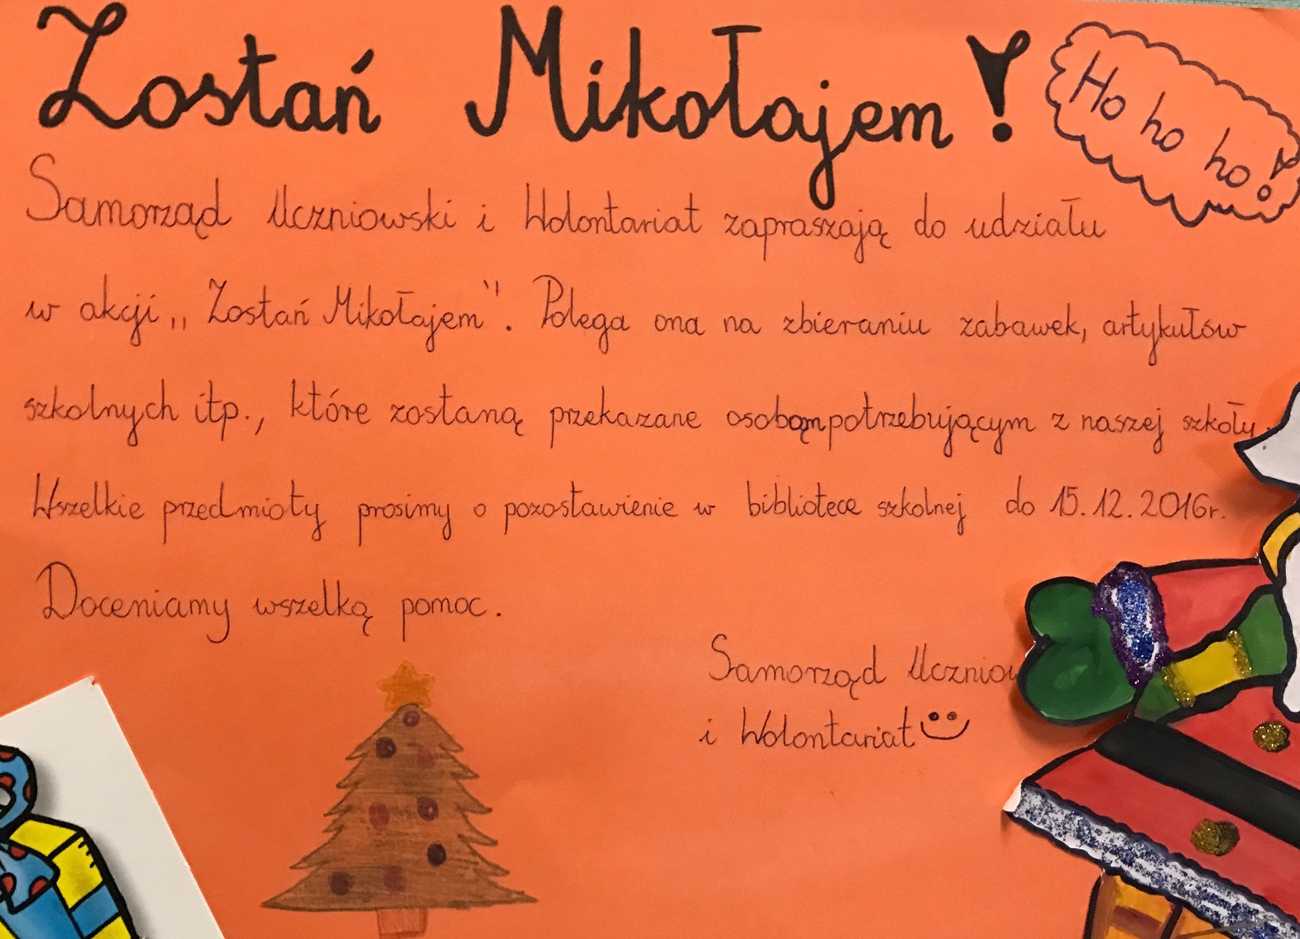 Zostań Mikołajem!
Ho ho ho!
Samorząd Uczniowski i Wolontariat zapraszają do udziału
w akcji „Zostań Mikołajem”. Polega ona na zbieraniu zabawek, artykułów
szkolnych itp., które zostaną przekazane osobom potrzebującym z naszej szkoły.
Wszelkie przedmioty prosimy o pozostawienie w bibliotece szkolnej do 15.12.2016r.
Doceniamy wszelką pomoc.
Samorząd Uczniow
i Wolontariat